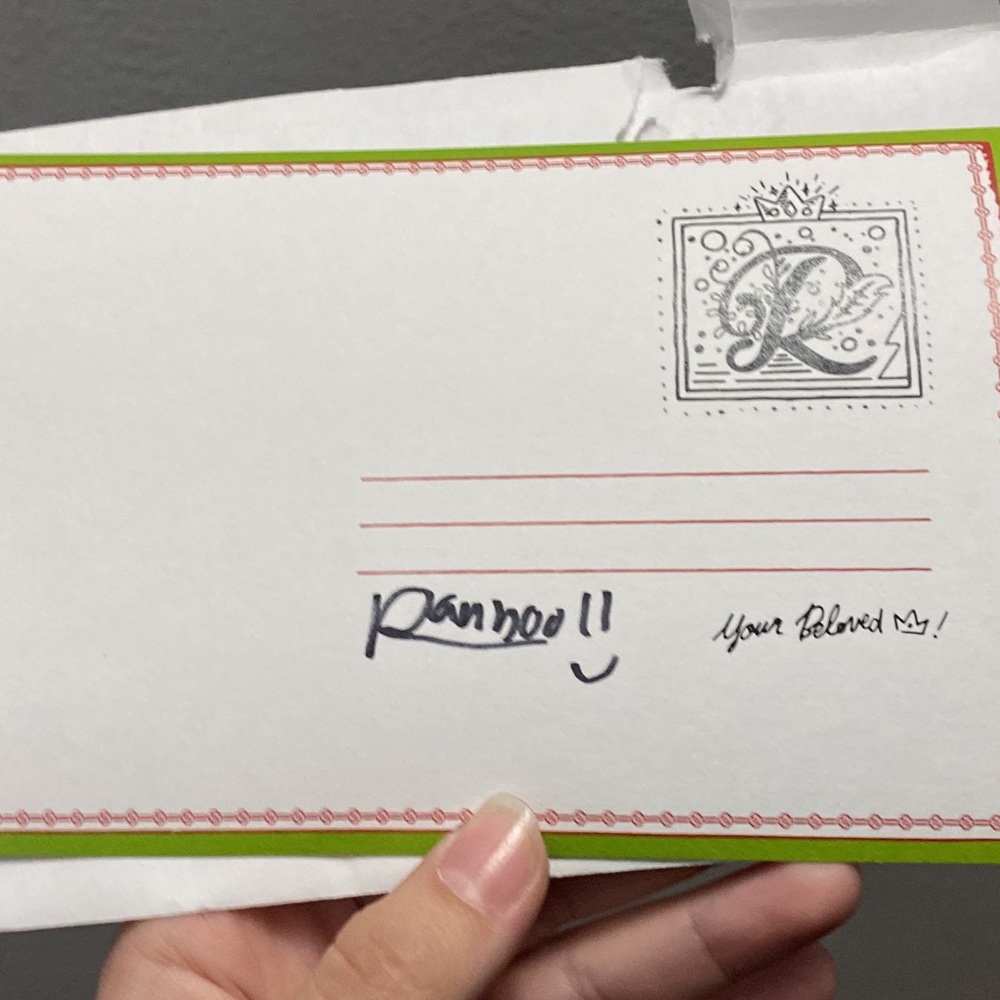 R
Ranboo!!
Your Beloved !